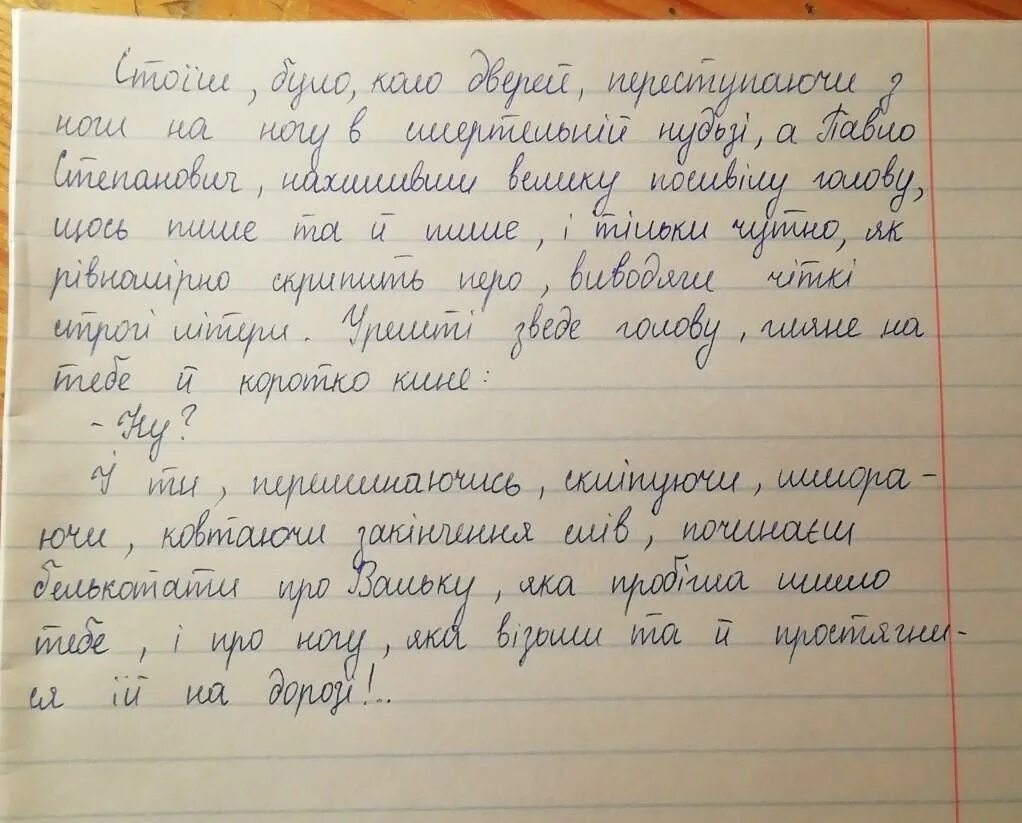 Стоїш, було, коло дверей, переступаючи з
ноги на ногу в смертельній нудьзі, а Павло
Степанович, нахиливши велику посивілу голову,
щось пише та й пише, і тільки чутно, як
рівномірно скрипить перо, виводячи чіткі
строгі літери. Урешті зведе голову, гляне на
тебе й коротко кине:
- Ну?
І ти, переминаючись, схліпуючи, шмора-
ючи, ковтаючи закінчення слів, починаєш
белькотати про Вальку, яка пробігла мимо
тебе, і про ногу, яка візьми та й простягни-
ся їй на дорозі!..